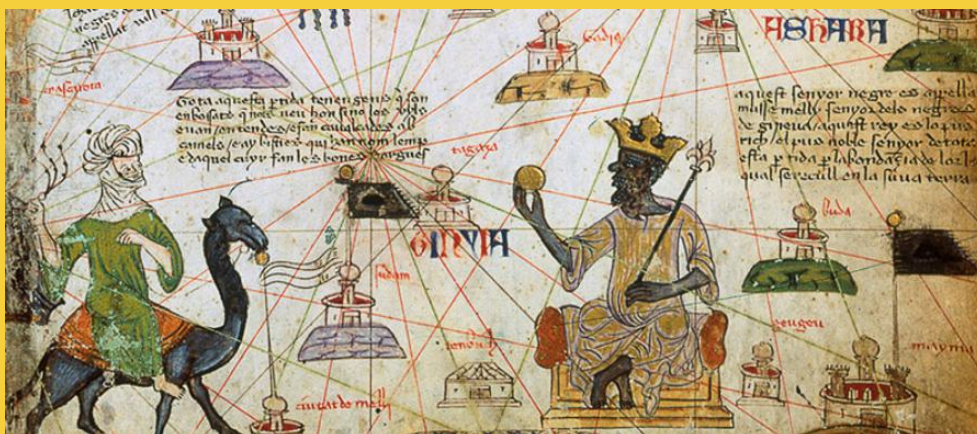 negres de
appellat
ASHARA
tota aquesta ptida tenen gens q son
enbosats q nols veu hom sino los uyls
e uan en tendes e fan caualcades ab
camels / e ay bisties qui han nom lemp
e daquel cuyr fan les bones dargues
aquest senyor negre es appella
musse melly senyor dels negres
de gineua / aquest rey es lo pus
rich el pus noble senyor de tota
esta ptida p labondansia de lor lo
qual se recull en la suua terra
tagaza
buda
GINYIA
sudam
geugeu
tenbuch
mayma
ciutat de melli